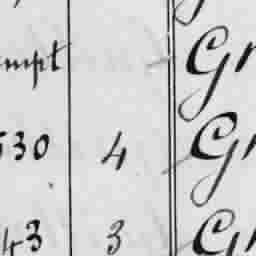 mpt Gr
530 4 Gr
43 3 Gr